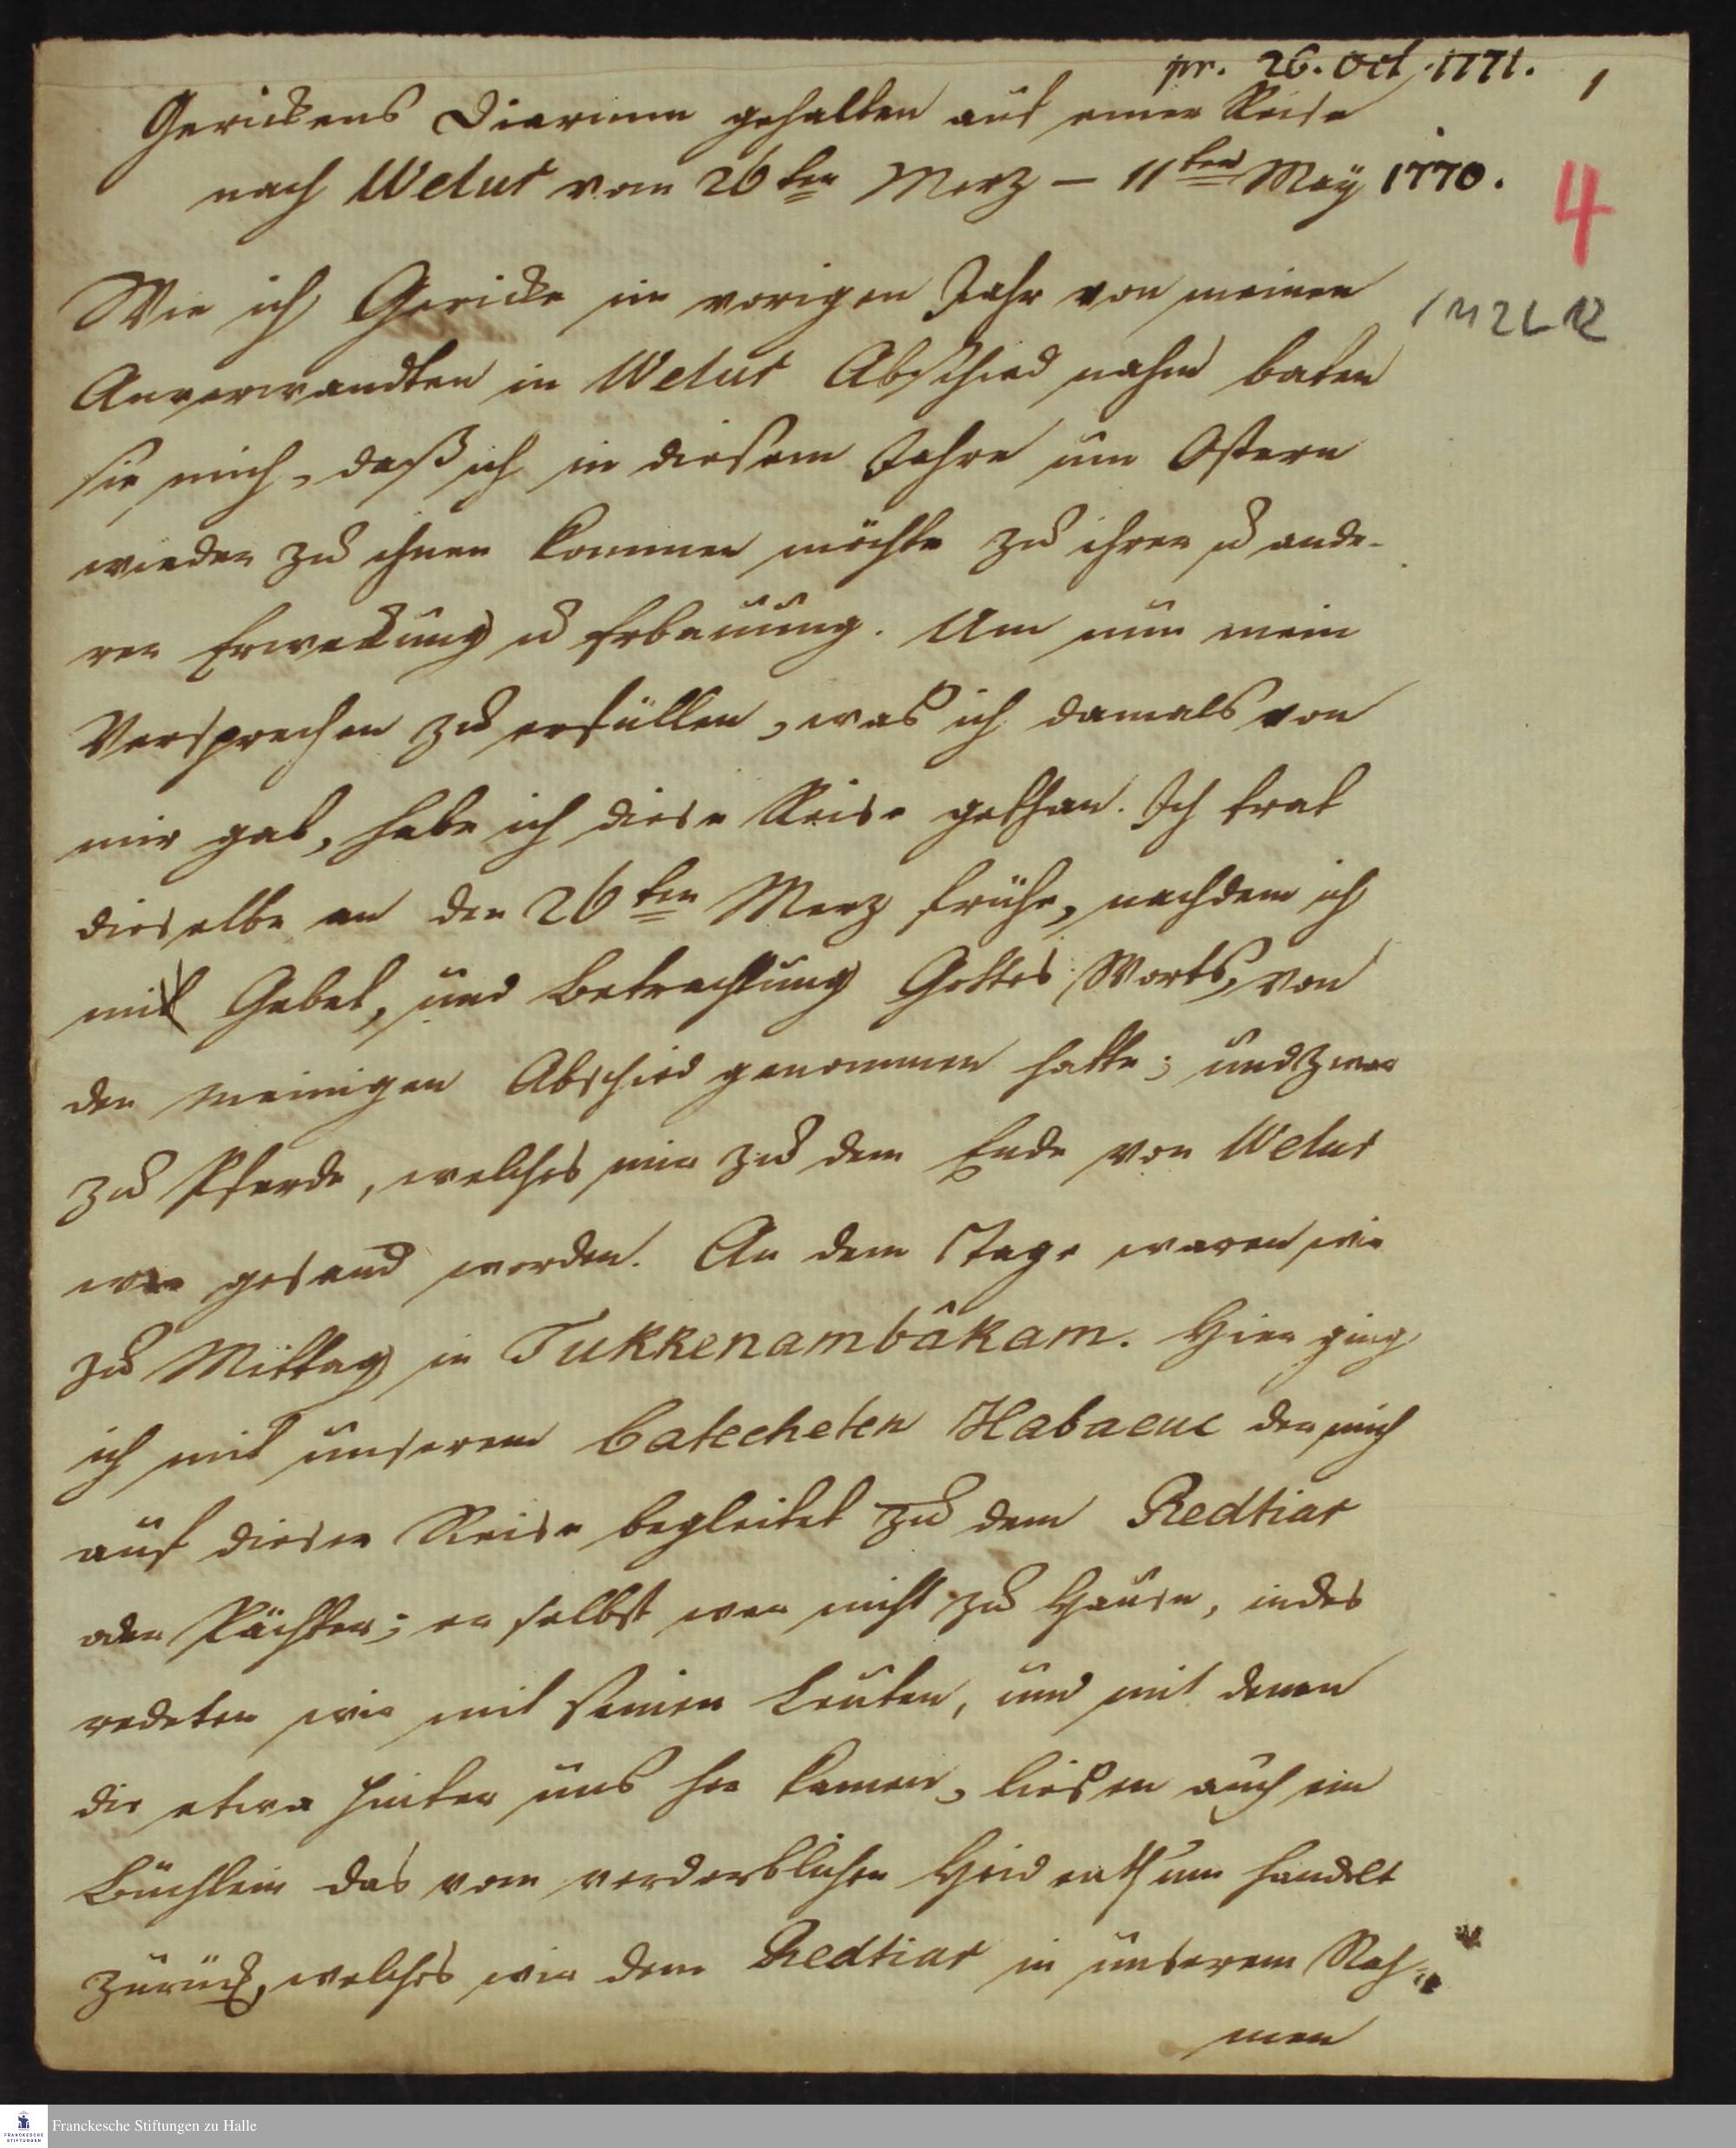 pr. 26. Oct. 1771.
1
Gerickens Diarium gehalten auf einer Reise
nach Welur vom 26ten Merz – 11ten May 1770.
4
1 M 2 L 12
Wie ich Gericke im vorigen Jahr von meinen
Anverwandten in Welur Abschied nahm baten
sie mich, daß ich in diesem Jahre um Ostern
wieder zu ihnen kommen möchte zu ihrer u ande-
rer Erweckung u Erbauung. Um nun mein
Versprechen zu erfüllen, was ich damals von
mir gab, habe ich diese Reise gethan. Ich trat
dieselbe an den 26ten Merz frühe, nachdem ich
mit Gebet, und Betrachtung Gottes Worts, von
den meinigen Abschied genommen hatte; und zwar
zu Pferde, welches mir zu dem Ende von Welur
war gesand worden. An dem Tage waren wir
zu Mittag in Tukkenambâkam. Hier ging
ich mit unserem Catecheten Habacuc der mich
auf dieser Reise begleitet zu dem Redtiar
oder Pächter; er selbst war nicht zu Hause, indes
redeten wir mit seinen Leuten, und mit denen
die etwa hinter uns her kamen, liesen auch ein
Büchlein das vom verderblichen Heidenthum handelt
zurück, welches wir dem Redtiar in unserem Nah-
men
Franckesche Stiftungen zu Halle